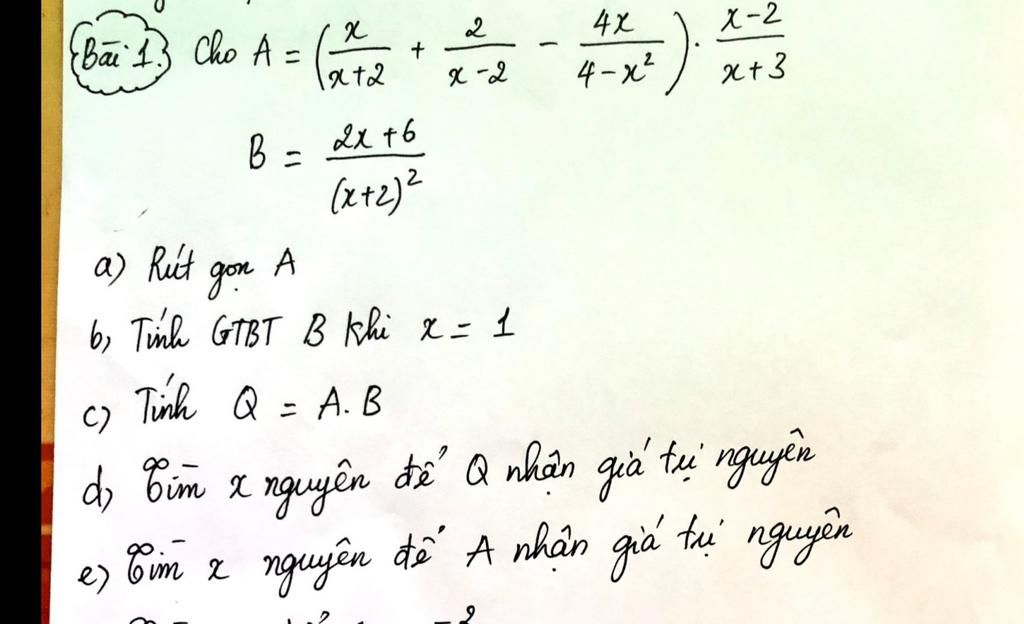 Bài 1. Cho A = (x/(x+2) + 2/(x-2) - 4x/(4-x²)) · (x-2)/(x+3)
B = (2x+6)/(x+2)²
a) Rút gọn A
b, Tính GTBT B khi x = 1
c) Tính Q = A.B
d, Tìm x nguyên để Q nhận giá trị nguyên
e) Tìm x nguyên để A nhận giá trị nguyên